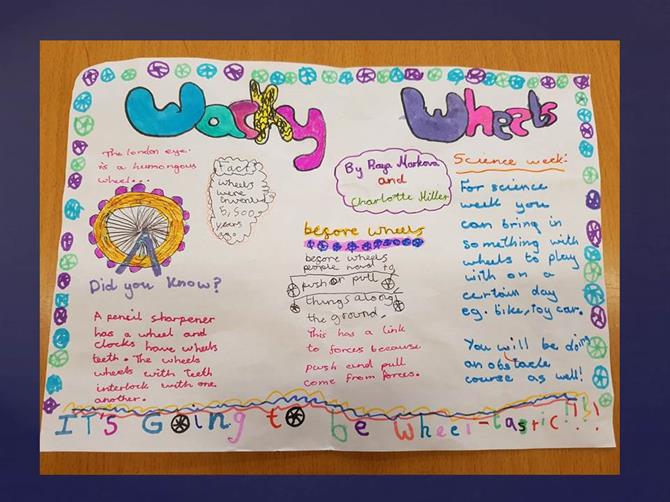 Wacky Wheels
The london eye.
is a humongous
wheel...
Fact:
wheels
were
invented
5,500
years
ago.
By Raya Markova
and
Charlotte Miller
Science week:
For science
week you
can bring in
something with
wheels to play
with on a
certain day
eg. bike, toy car.
You will be doing
an obstacle
course as well!
before wheels
before wheels
people to
push or pull
things along
the ground.
This has a link
to forces because
push and pull
come from forces.
Did you know?
A pencil sharpener
has a wheel and
clocks have wheels
teeth. The wheels
wheels with teeth
interlock with one
another.
IT'S GOing to be wheel-tastic!!!!